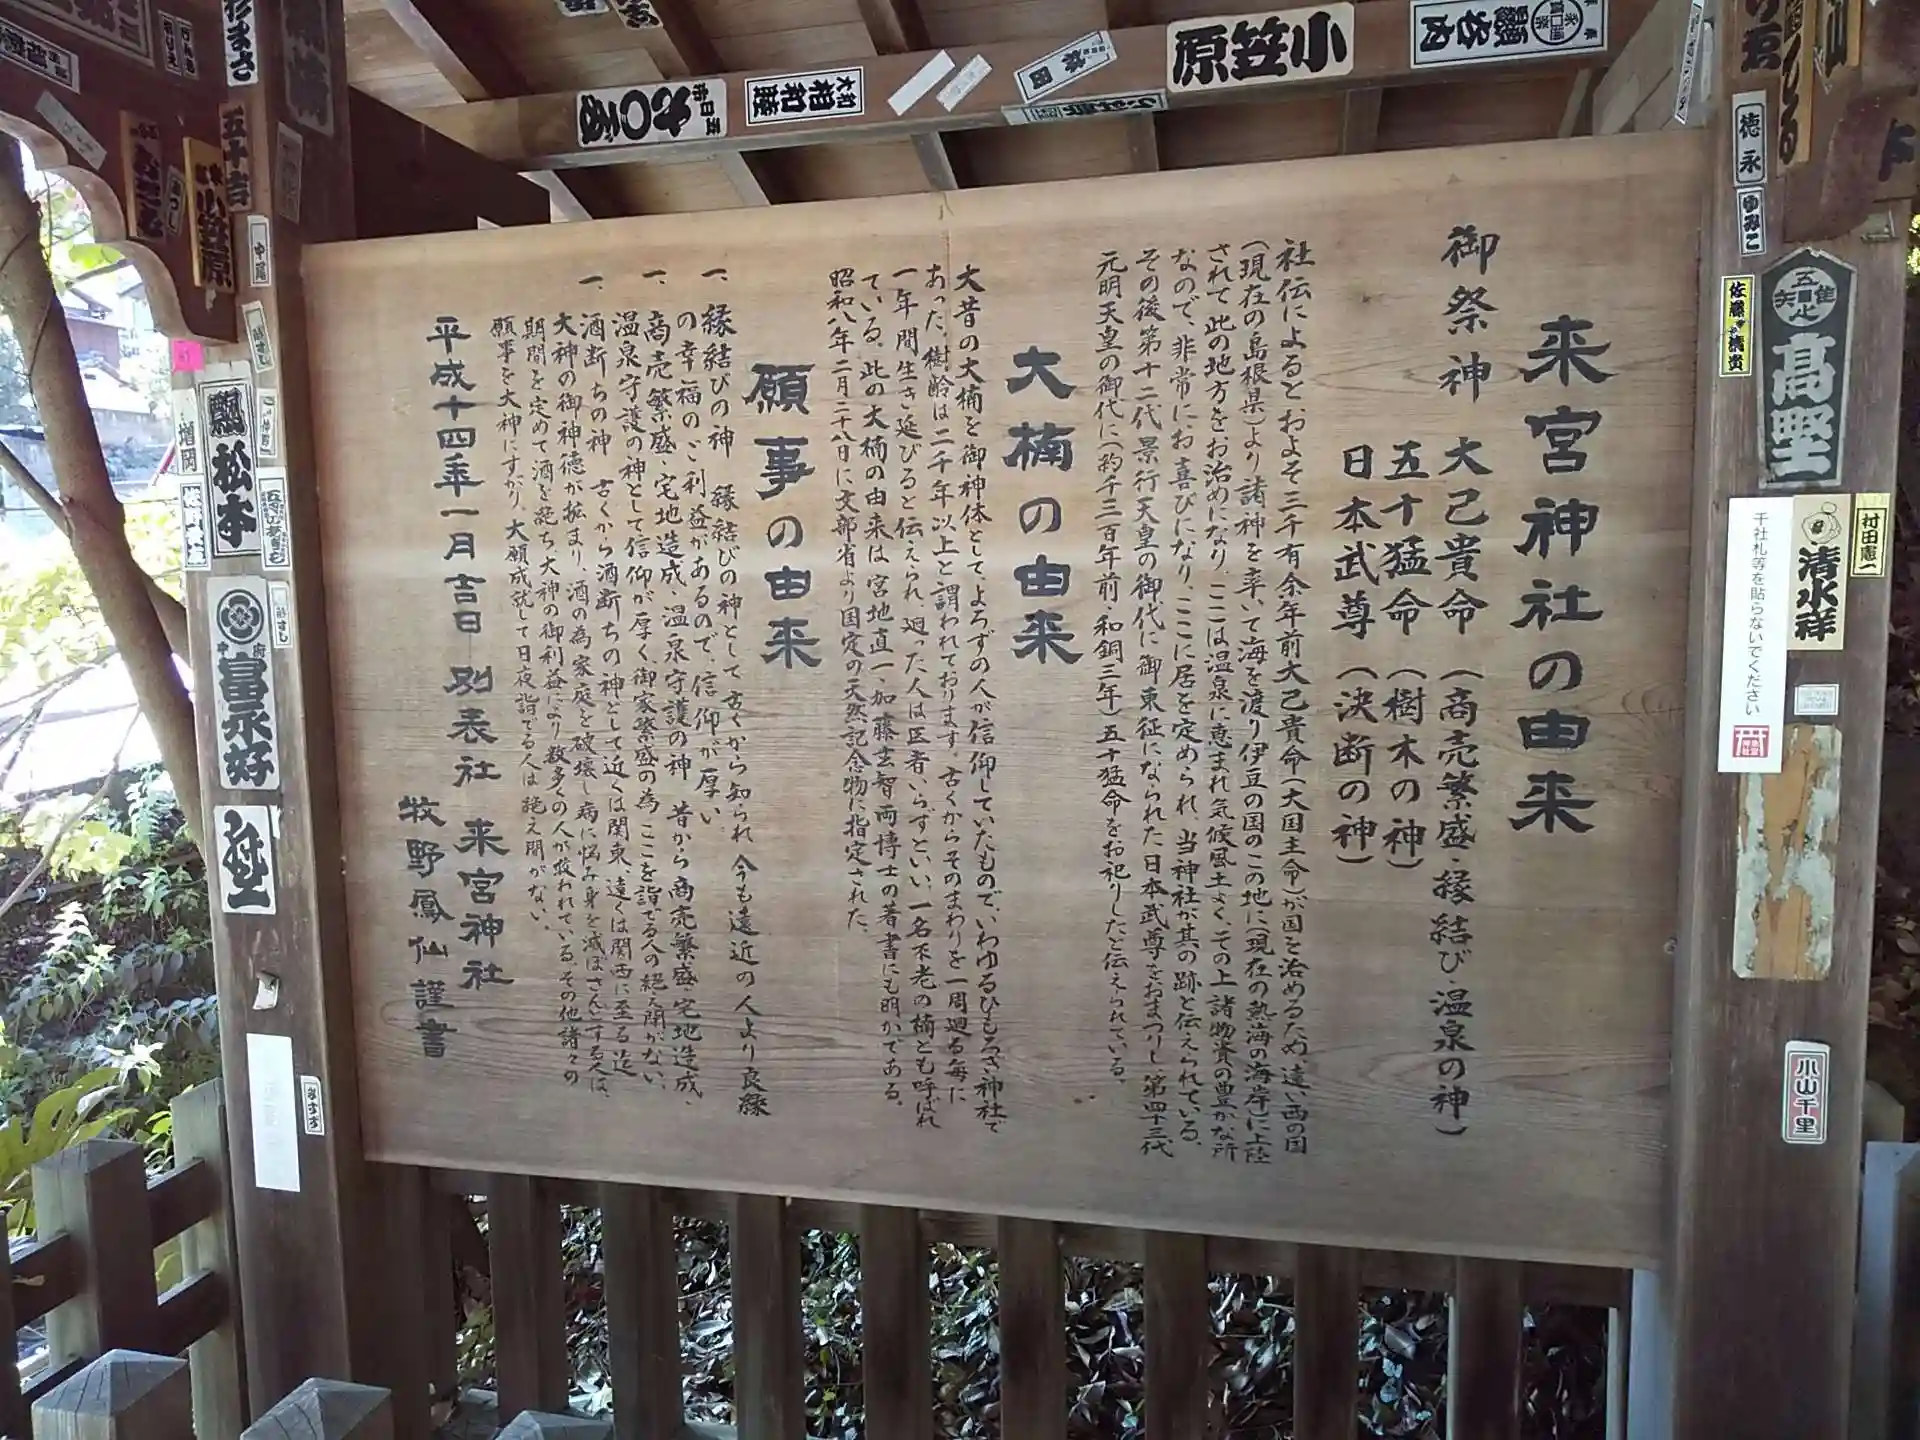 来宮神社の由来
御祭神 大己貴命 (商売繁盛・縁結び・温泉の神)
五十猛命 (樹木の神)
日本武尊 (決断の神)
社伝によるとおよそ三千有余年前大己貴命(大国主命)が国を治めるため、遠い西の国
(現在の島根県)より諸神を率いて海を渡り伊豆の国のこの地に(現在の熱海の海岸)に上陸
されて此の地方をお治めになり、ここは温泉に恵まれ気候風土よく、その上諸物資の豊かな所
なので、非常にお喜びになり、ここに居を定められ、当神社が其の跡と伝えられている。
その後第十二代景行天皇の御代に御東征になられた日本武尊をおまつりし第四十三代
元明天皇の御代に(約千三百年前・和銅三年)五十猛命をお祀りしたと伝えられている。
大楠の由来
大昔の大楠を御神体として、よろずの人が信仰していたもので、いわゆるひもろぎ神社で
あった。樹齢は二千年以上と謂われております。古くからそのまわりを一周廻る毎に
一年間生き延びると伝えられ、廻った人は医者いらずといい、一名不老の楠とも呼ばれ
ている。此の大楠の由来は宮地直一、加藤玄智両博士の著書にも明かである。
昭和八年二月二十八日に文部省より国定の天然記念物に指定された。
願事の由来
一、縁結びの神 縁結びの神として古くから知られ 今も遠近の人より良縁
の幸福のご利益があるので、信仰が厚い
一、商売繁盛・宅地造成、温泉守護の神 昔から商売繁盛・宅地造成、
温泉守護の神として信仰が厚く、御家繁盛の為 ここを詣でる人の絶え間がない。
一、酒断ちの神 古くから酒断ちの神として近くは関東、遠くは関西に至る迄
大神の御神徳が拡まり、酒の為家庭を破壊し病に悩み身を滅ぼさんとする人は、
期間を定めて酒を絶ち大神の御利益により数多くの人が救われている。その他諸々の
願事を大神にすがり、大願成就して日夜詣でる人は絶え間がない。
平成十四年一月吉日 別表社 来宮神社
牧野鳳仙謹書
小笠原
大和
相和睦
徳永
ゆみこ
佐藤
高野
村田憲一
清水祥
千社札等を貼らないでください
小山千里
杉まさ
五十吉
小笠原
中尾
松本
増岡
中府
冨永好